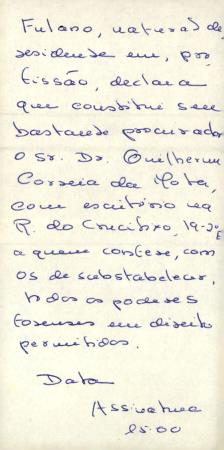 Fulano, natural de
residente em, pro
fissão, declara
que constitui seu
bastante procurador
o Sr. Dr. Guilherme
Correia da Mota,
com escritório na
R. do Crucifixo, 19-2º E
a quem confere, com
os de substabelecer,
todos os poderes
forenses em direito
permitidos.
Data
Assinatura
15:00